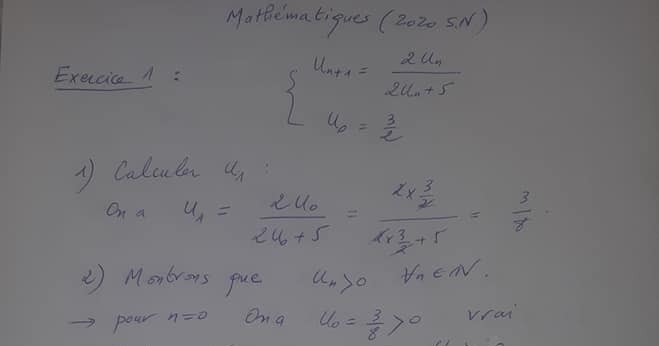 Mathématiques (2020 S.N)
Exercice 1 : { Un+1 = 2Un / (2Un + 5)
U0 = 3/2
1) Calculer U1 :
On a U1 = 2U0 / (2U0 + 5) = (2 × 3/2) / (2 × 3/2 + 5) = 3/8 .
2) Montrons que Un > 0 ∀n ∈ IN.
→ pour n=0 On a U0 = 3/8 > 0 vrai